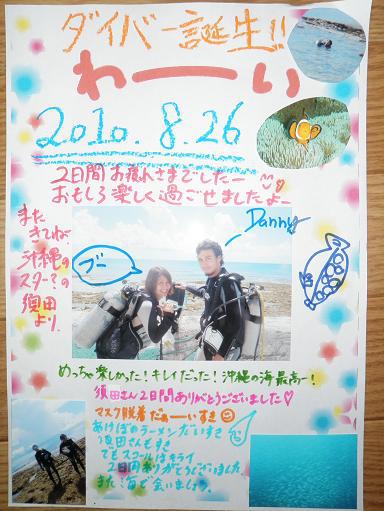 ダイバー誕生!!
わーーい
2010.8.26
2日間お疲れさまでしたー
おもしろ楽しく過ごせましたよー
また
きてね♡
沖縄の
スター?の
須田
より.
ブー
Danny
めっちゃ楽しかった!キレイだった!沖縄の海最高ー!
須田さん2日間ありがとうございました♡
マスク脱着だぁーいすき
あけぼのラーメンだいすき
須田さんもすき
でもスコールはキライ
2日間ありがとうございました
また海で会いましょう.